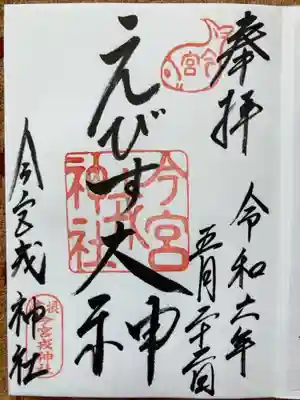 奉拝
令和六年
五月二十二日
えびす大神
今宮戎神社
今宮
今宮戎神社
摂津 今宮戎神社